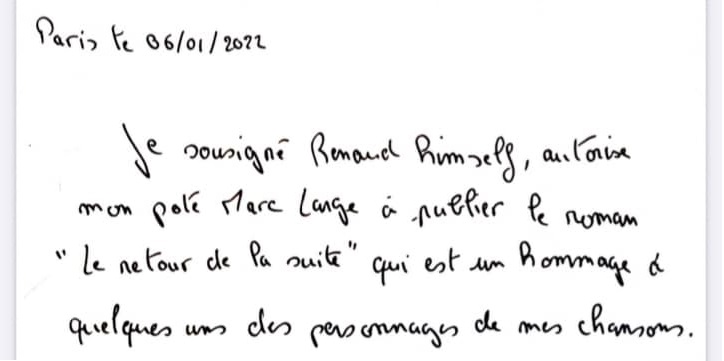 Paris le 06/01/2022
Je sousigné Renaud himself, autorise
mon pote Marc Lange à publier le roman
"Le retour de la suite" qui est un hommage à
quelques uns des personnages de mes chansons.